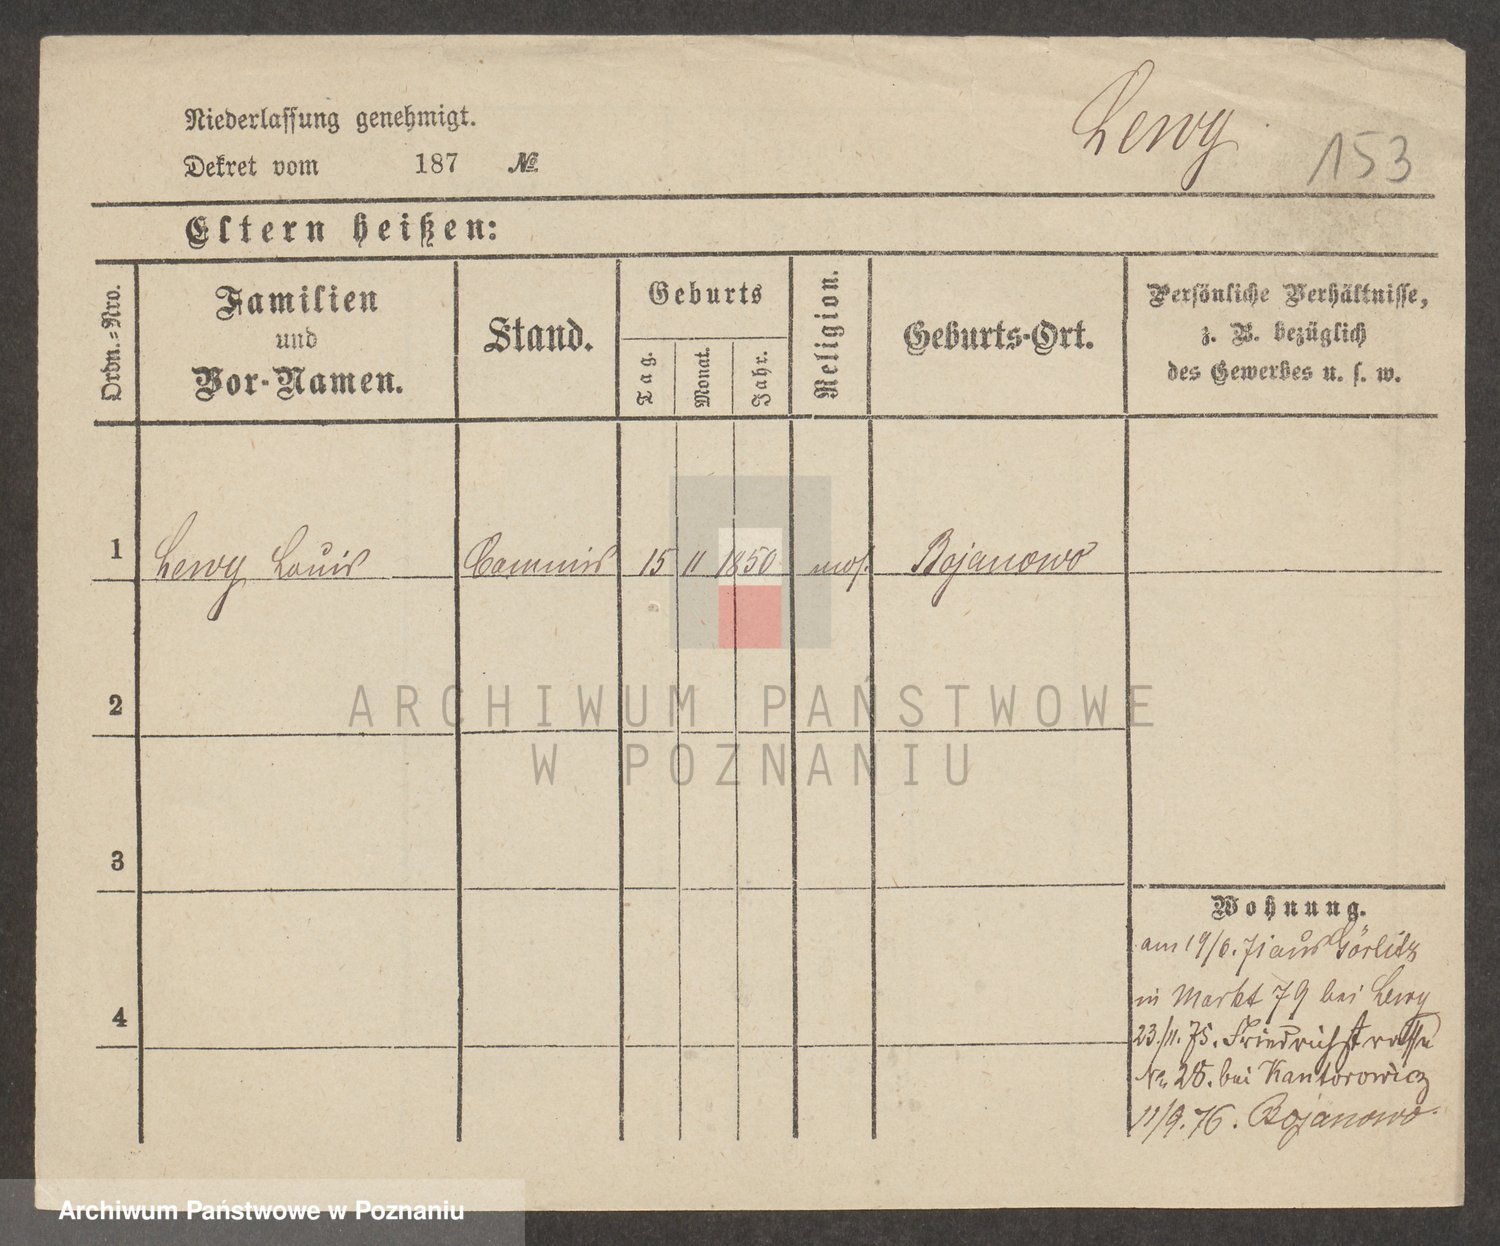 Niederlassung genehmigt.
Dekret vom 187 №
Lewy
153
Eltern heißen:
Ordn.-Nro.
Familien und Vor-Namen.
Stand.
Geburts
Tag.
Monat.
Jahr.
Religion.
Geburts-Ort.
Persönliche Verhältnisse,
z. B. bezüglich
des Gewerbes u. s. w.
1 Lewy Louis Commis 15 11 1850 mos. Bojanowo
2
ARCHIWUM PAŃSTWOWE
W POZNANIU
3
Wohnung.
am 19/6. 71 aus Görlitz
in Markt 79 bei Lewy
4
23./11. 75. Friedrichstrasse
No 28. bei Kantorowicz
11/9. 76. Bojanowo.
Archiwum Państwowe w Poznaniu